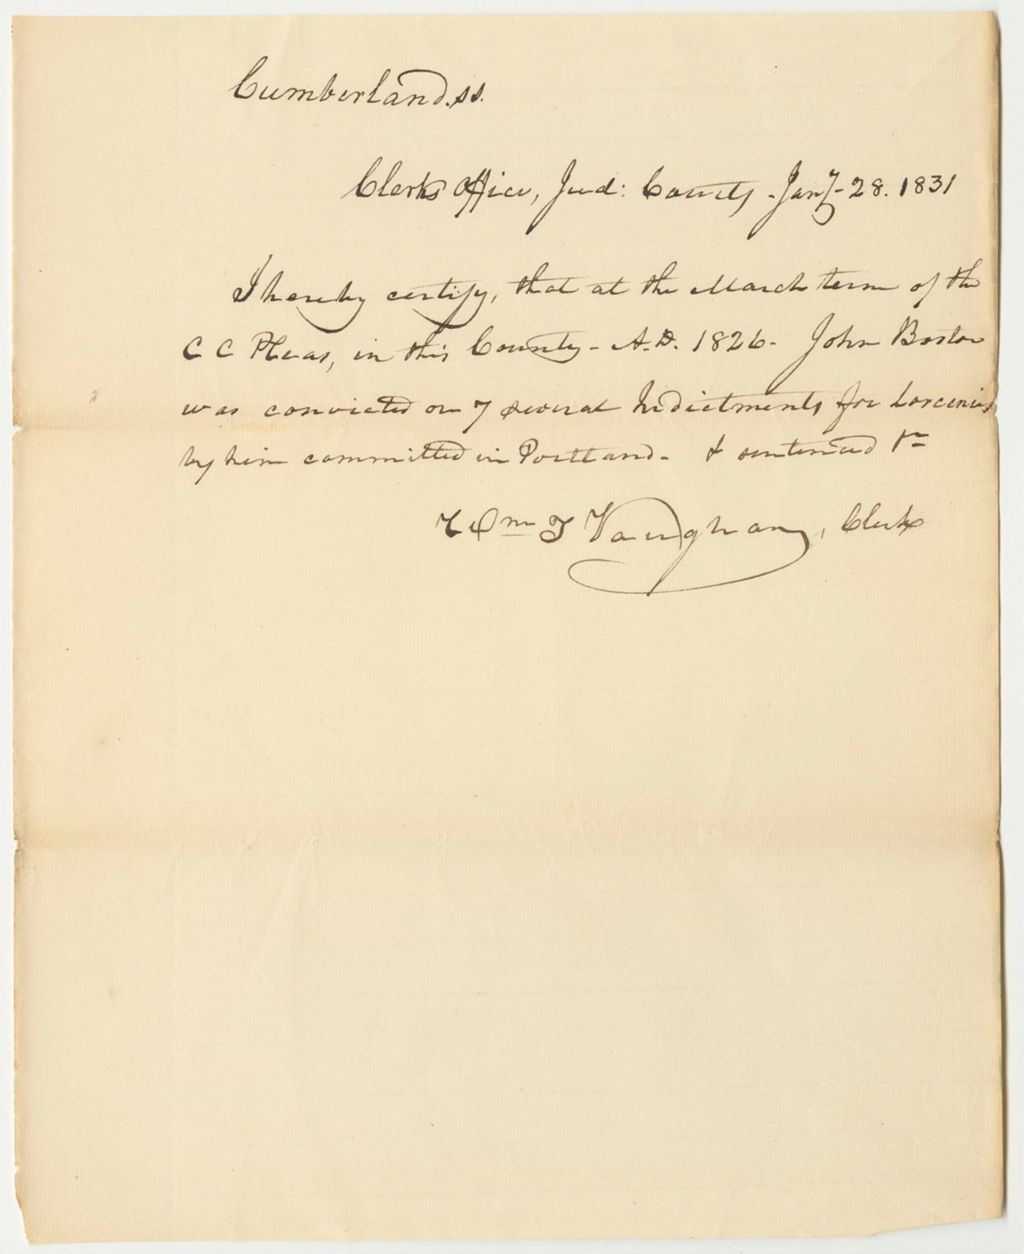 Cumberland.ss.
Clerks Office, Jud: Courts - Jany- 28. 1831
I hereby certify, that at the March term of the
C C Pleas, in this County - A.D. 1826 - John Boston
was convicted on 7 several Indictments for Larcenies
by him committed in Portland - & sentenced
Wm T Vaughan, Clerk